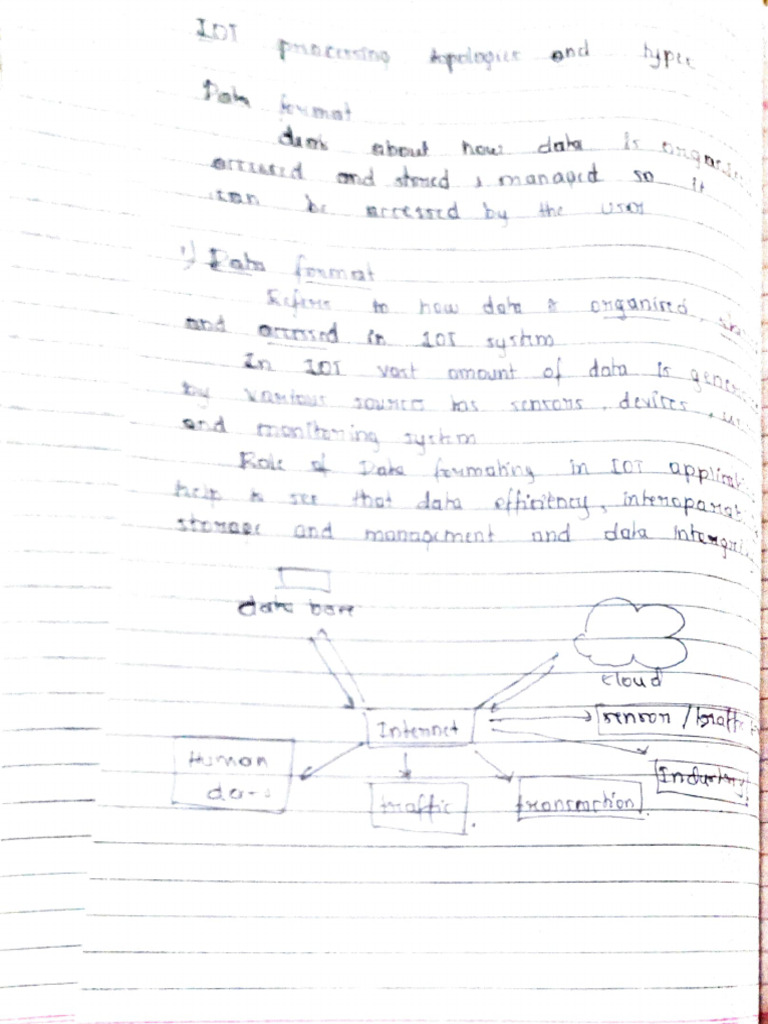 IOT processing topologies and types
Data format
deals about how data is organis
accessed and stored, managed so it
can be accessed by the user
1) Data format
Refers to how data is organised,
and accessed in IOT system
In IOT vast amount of data is gener
by various sources has sensors, devices,
and monitoring system
Role of Data formating in IOT applicat
help to see that data efficiency, interoparat
storage and management and data Intergri
data base
cloud
Internet
sensor / traffic
Human
Industry
traffic
transaction